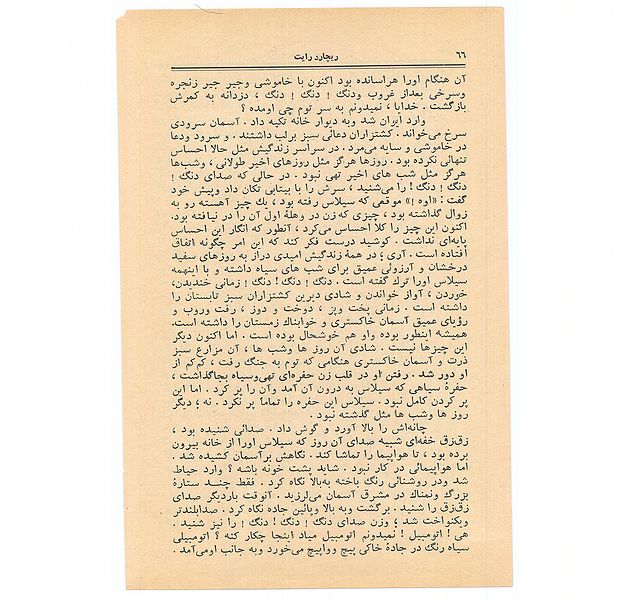 ۶۶
ریچارد رایت
آن هنگام اورا هراسانده بود اکنون با خاموشی وجیر جیر زنجره
وسرخی بعداز غروب ودنگ ! دنگ ! دنگ ، دزدانه به کمرش
بازگشت . خدایا ، نمیدونم به سر توم چی اومده ؟
وارد ایوان شد وبه دیوار خانه تکیه داد . آسمان سرودی
سرخ می‌خواند . کشتزاران دعائی سبز برلب داشتند . و سرود ودعا
در خاموشی و سایه می‌مرد . در سراسر زندگیش مثل حالا احساس
تنهائی نکرده بود . روزها هرگز مثل روزهای اخیر طولانی ، وشب‌ها
هرگز مثل شب های اخیر تهی نبود . در حالی که صدای دنگ !
دنگ ! دنگ ! را می‌شنید ، سرش را با بیتابی تکان داد وپیش خود
گفت : «اوه !» موقعی که سیلاس رفته بود ، یك چیز آهسته رو به
زوال گذاشته بود ، چیزی که زن در وهلهٔ اول آن را در نیافته بود.
اکنون این چیز را کلا احساس می‌کرد ، آنطور که انگار این احساس
پایه‌ای نداشت . کوشید درست فکر کند که این امر چگونه اتفاق
افتاده است . آری ؛ در همهٔ زندگیش امیدی دراز به روزهای سفید
درخشان و آرزوئی عمیق برای شب های سیاه داشته و با اینهمه
سیلاس اورا ترك گفته است . دنگ ! دنگ ! دنگ ! زمانی خندیدن،
خوردن ، آواز خواندن و شادی دیرین کشتزاران سبز تابستان را
داشته است . زمانی پخت وپز ، دوخت و دوز ، رفت وروب و
رؤیای عمیق آسمان خاکستری و خوابناك زمستان را داشته است.
همیشه اینطور بوده واو هم خوشحال بوده است . اما اکنون دیگر
این چیزها نیست . شادی آن روز ها وشب ها ، آن مزارع سبز
ذرت و آسمان خاکستری هنگامی که توم به جنگ رفت ، کم‌کم از
او دور شد . رفتن او در قلب زن حفره‌ای تهی‌وسیاه بجاگذاشت ،
حفرهٔ سیاهی که سیلاس به درون آن آمد وآن را پر کرد . اما این
پر کردن کامل نبود . سیلاس این حفره را تماما پر نکرد . نه ؛ دیگر
روز ها وشب ها مثل گذشته نبود .
چانه‌اش را بالا آورد و گوش داد . صدائی شنیده بود ،
زق‌زق خفه‌ای شبیه صدای آن روز که سیلاس اورا از خانه بیرون
برده بود ، تا هواپیما را تماشا کند . نگاهش برآسمان کشیده شد .
اما هواپیمائی در کار نبود . شاید پشت خونه باشه ؟ وارد حیاط
شد ودر روشنائی رنگ باخته به‌بالا نگاه کرد . فقط چند ستارهٔ
بزرگ ونمناك در مشرق آسمان می‌لرزید . آنوقت باردیگر صدای
زق‌زق را شنید . برگشت وبه بالا وپائین جاده نگاه کرد . صدابلندتر
ویکنواخت شد ؛ وزن صدای دنگ ! دنگ ! دنگ ! را نیز شنید .
هی ! اتومبیل ! نمیدونم اتومبیل میاد اینجا چکار کنه ؟ اتومبیلی
سیاه رنگ در جادهٔ خاکی پیچ وواپیچ می‌خورد وبه جانب اومی‌آمد .